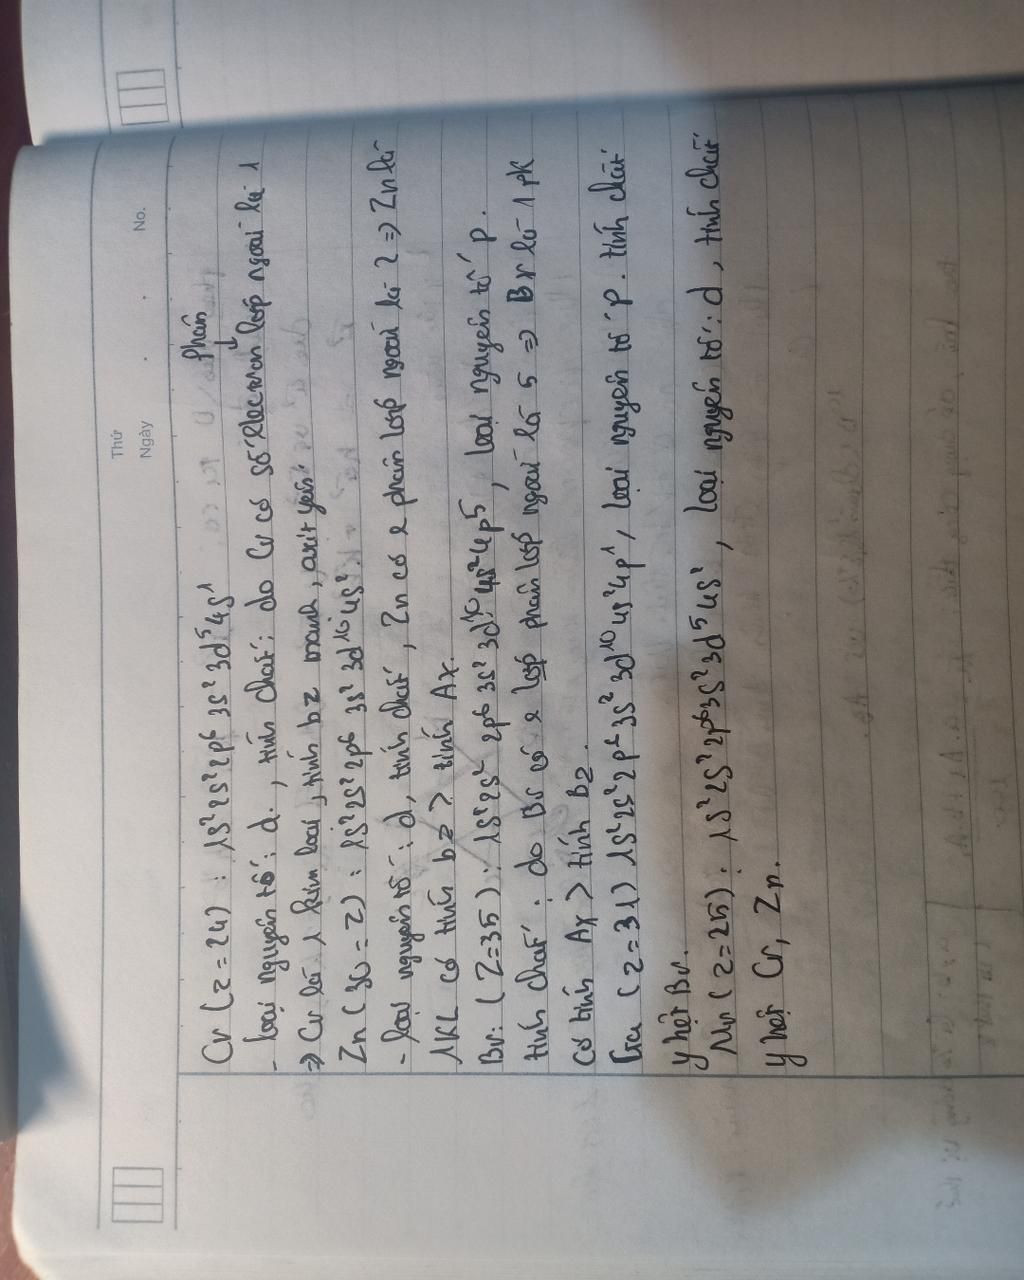 Thứ
Ngày . . No.
phân
Cr (z = 24) : 1s² 2s² 2p⁶ 3s² 3d⁵ 4s¹
- loại nguyên tố: d. , tính chất: do Cr có số electron lớp ngoài là 1
⇒ Cr là 1 kim loại, tính bz mạnh, axit yếu.
Zn (30 = z) : 1s² 2s² 2p⁶ 3s² 3d¹⁰ 4s².
- loại nguyên tố: d, tính chất, Zn có e phân lớp ngoài là 2 ⇒ Zn là
1KL có tính bz > tính Ax.
Br: (Z = 35) : 1s² 2s² 2p⁶ 3s² 3d¹⁰ 4s² 4p⁵, loại nguyên tố p.
tính chất : do Br có e lớp phân lớp ngoài là 5 ⇒ Br là 1 pk
có tính Ax > tính Bz.
Ga (z = 31) 1s² 2s² 2p⁶ 3s² 3d¹⁰ 4s² 4p¹, loại nguyên tố p. tính chất
y hệt Br.
Mn (z = 25) : 1s² 2s² 2p⁶ 3s² 3d⁵ 4s², loại nguyên tố: d, tính chất
y hệt Cr, Zn.